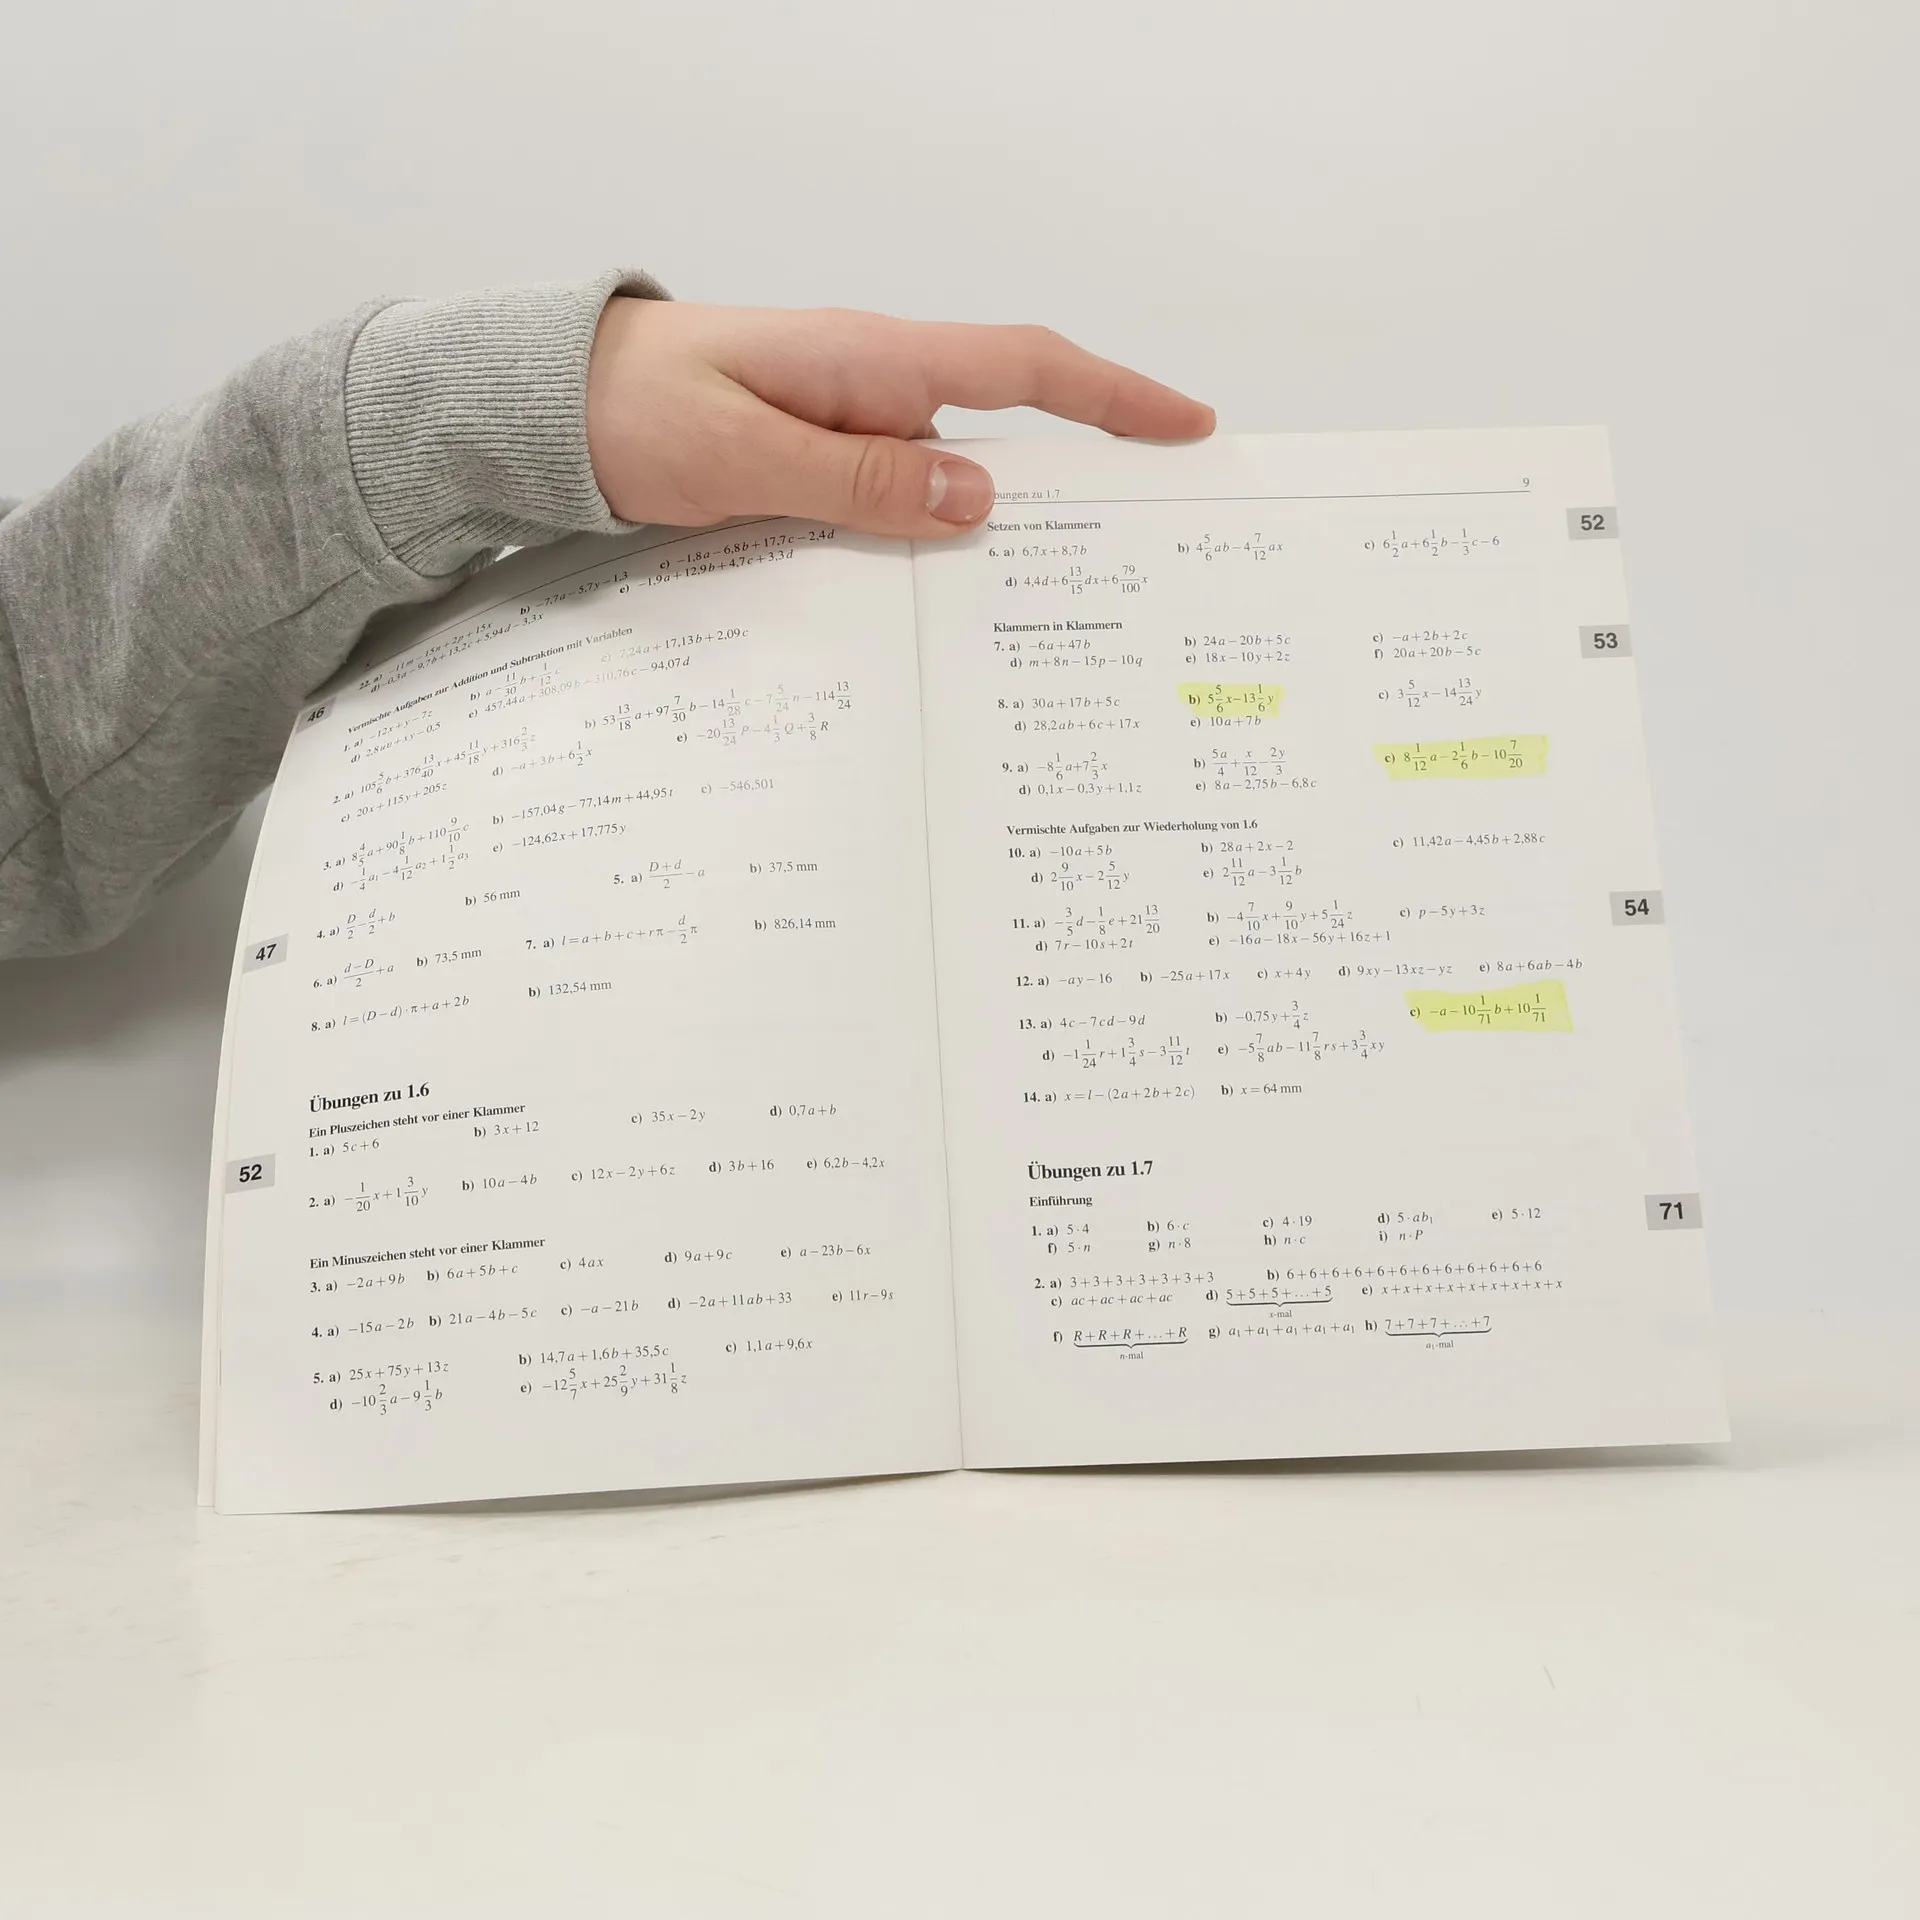 22. a) −11m−15n+2p+15x b) −7,7a−5,7y−1,3 c) −1,8a−6,8b+17,7c−2,4d
d) −0,3a−9,7b+13,2c+5,94d−3,3x e) −1,9a+12,9b+4,7c+3,3d
46
Vermischte Aufgaben zur Addition und Subtraktion mit Variablen
1. a) −12x+y−7z b) a−11/30 b+1/12 c c) 7,24a+17,13b+2,09c
d) 2,8uv+xy−0,5 e) 457,44a+308,09b−310,76c−94,07d
2. a) 105 5/6 b+376 13/40 x+45 11/18 y+316 2/3 z b) 53 13/18 a+97 7/30 b−14 1/28 c−7 5/24 n−114 13/24
c) 20x+115y+205z d) −a+3b+6 1/2 x e) −20 13/24 P−4 1/3 Q+3/8 R
3. a) 8 4/5 a+90 1/8 b+110 9/10 c b) −157,04g−77,14m+44,95t c) −546,501
d) −1/4 a₁−4 1/12 a₂+1 1/2 a₃ e) −124,62x+17,775y
4. a) D/2−d/2+b b) 56 mm 5. a) (D+d)/2−a b) 37,5 mm
47
6. a) (d−D)/2+a b) 73,5 mm 7. a) l=a+b+c+rπ−d/2 π b) 826,14 mm
8. a) l=(D−d)·π+a+2b b) 132,54 mm
Übungen zu 1.6
Ein Pluszeichen steht vor einer Klammer
52
1. a) 5c+6 b) 3x+12 c) 35x−2y d) 0,7a+b
2. a) −1/20 x+1 3/10 y b) 10a−4b c) 12x−2y+6z d) 3b+16 e) 6,2b−4,2x
Ein Minuszeichen steht vor einer Klammer
3. a) −2a+9b b) 6a+5b+c c) 4ax d) 9a+9c e) a−23b−6x
4. a) −15a−2b b) 21a−4b−5c c) −a−21b d) −2a+11ab+33 e) 11r−9s
5. a) 25x+75y+13z b) 14,7a+1,6b+35,5c c) 1,1a+9,6x
d) −10 2/3 a−9 1/3 b e) −12 5/7 x+25 2/9 y+31 1/8 z
bungen zu 1.7 9
Setzen von Klammern 52
6. a) 6,7x+8,7b b) 4 5/6 ab−4 7/12 ax c) 6 1/2 a+6 1/2 b−1/3 c−6
d) 4,4d+6 13/15 dx+6 79/100 x
Klammern in Klammern 53
7. a) −6a+47b b) 24a−20b+5c c) −a+2b+2c
d) m+8n−15p−10q e) 18x−10y+2z f) 20a+20b−5c
8. a) 30a+17b+5c b) 5 5/6 x−13 1/6 y c) 3 5/12 x−14 13/24 y
d) 28,2ab+6c+17x e) 10a+7b
9. a) −8 1/6 a+7 2/3 x b) 5a/4+x/12−2y/3 c) 8 1/12 a−2 1/6 b−10 7/20
d) 0,1x−0,3y+1,1z e) 8a−2,75b−6,8c
Vermischte Aufgaben zur Wiederholung von 1.6
10. a) −10a+5b b) 28a+2x−2 c) 11,42a−4,45b+2,88c
d) 2 9/10 x−2 5/12 y e) 2 11/12 a−3 1/12 b
54
11. a) −3/5 d−1/8 e+21 13/20 b) −4 7/10 x+9/10 y+5 1/24 z c) p−5y+3z
d) 7r−10s+2t e) −16a−18x−56y+16z+1
12. a) −ay−16 b) −25a+17x c) x+4y d) 9xy−13xz−yz e) 8a+6ab−4b
13. a) 4c−7cd−9d b) −0,75y+3/4 z c) −a−10 1/71 b+10 1/71
d) −1 1/24 r+1 3/4 s−3 11/12 t e) −5 7/8 ab−11 7/8 rs+3 3/4 xy
14. a) x=l−(2a+2b+2c) b) x=64 mm
Übungen zu 1.7
Einführung 71
1. a) 5·4 b) 6·c c) 4·19 d) 5·ab₁ e) 5·12
f) 5·n g) n·8 h) n·c i) n·P
2. a) 3+3+3+3+3+3+3 b) 6+6+6+6+6+6+6+6+6+6+6+6
c) ac+ac+ac+ac d) 5+5+5+...+5 e) x+x+x+x+x+x+x+x+x
x-mal
f) R+R+R+...+R g) a₁+a₁+a₁+a₁+a₁ h) 7+7+7+...+7
n-mal a₁-mal